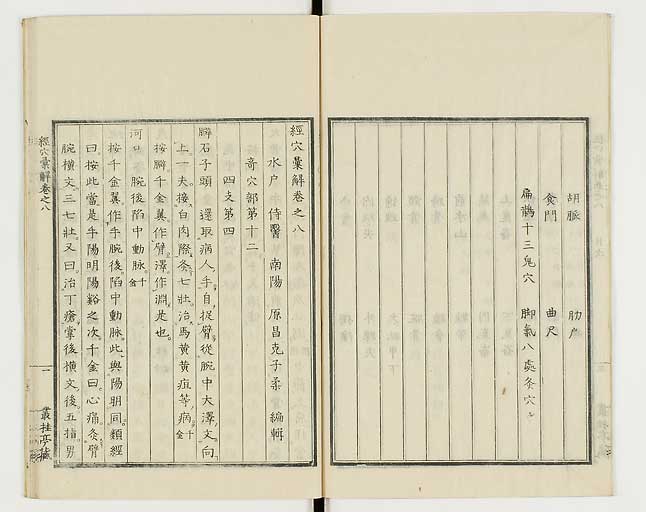 胡脈 肋戸
食門 曲尺
扁鵲十三鬼穴 脚氣八處灸穴
經穴彙解卷之八
水戸 侍醫 南陽 原昌克子柔 編輯
奇穴部第十二
四支第四
臂石子頭 還取病人手自捉臂從腕中大澤文向
上一夫接白肉際灸七壯治馬黃黃疸等病千金
按臂千金翼作臂澤作淵是也
河口 腕後陷中動脉千金
按千金翼作手腕後陷中動脉此與陽明同類經
曰按此當是手陽明陽谿之次千金曰心痛灸臂
腕橫文三七壯又曰治丁瘡掌後橫文後五指男
經穴彙解卷之八
一
叢桂亭藏